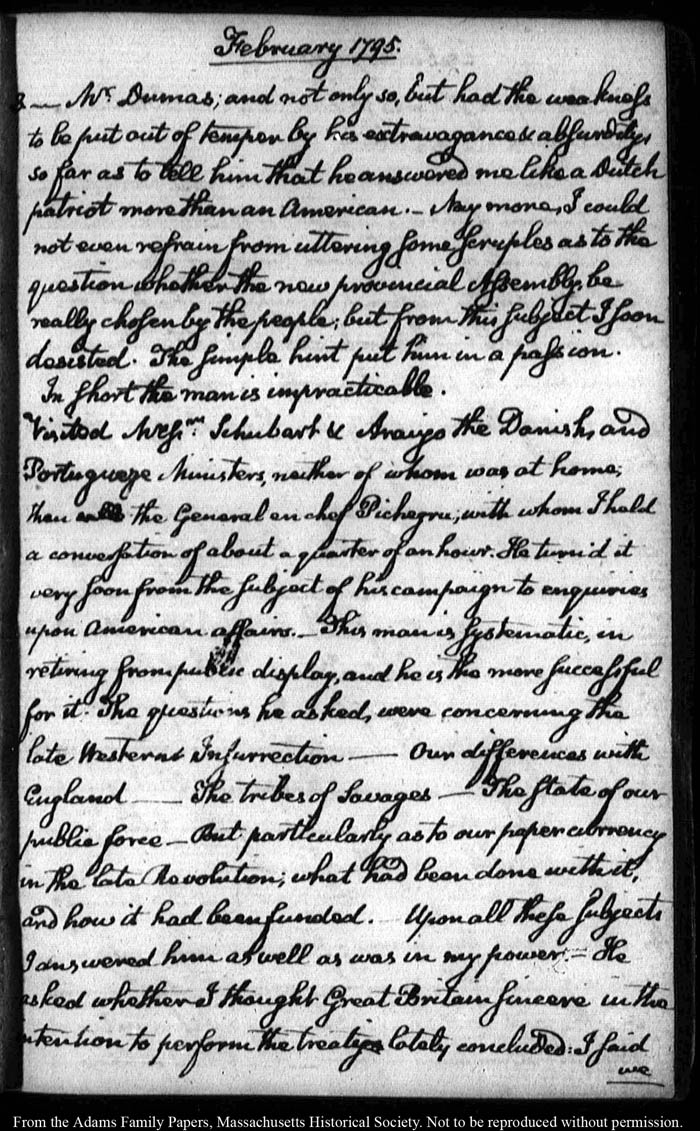 February 1795.
8 — Mr. Dumas; and not only so, but had the weakness
to be put out of temper by his extravagance & absurdity,
so far as to tell him that he answered me like a Dutch
patriot more than an American. — Nay more, I could
not even refrain from uttering some scruples as to the
question whether the new provincial Assembly be
really chosen by the people; but from this subject I soon
desisted. The simple hint put him in a passion.
In short the man is impracticable.
Visited Messrs. Schubart & Araujo the Danish, and
Portugueze Ministers, neither of whom was at home;
then the General en chef Pichegru; with whom I held
a conversation of about a quarter of an hour. He turn'd it
very soon from the subject of his campaign to enquiries
upon American affairs. — This man is systematic, in
retiring from public display, and he is the more successful
for it. The questions he asked, were concerning the
late Western Insurrection — Our differences with
England — The tribes of Savages — The State of our
public force — But particularly as to our paper currency
in the late Revolution; what had been done with it,
and how it had been funded. Upon all these subjects
I answered him as well as was in my power. — He
asked whether I thought Great Britain sincere in the
intention to perform the treaty lately concluded: I said
we
From the Adams Family Papers, Massachusetts Historical Society. Not to be reproduced without permission.